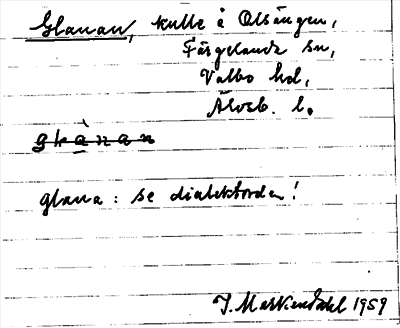 Glanan, kulle å Olsängen,
Färgelanda sn,
Valbo hd,
Älvsb. l.
glànan
glana: se dialektorden!